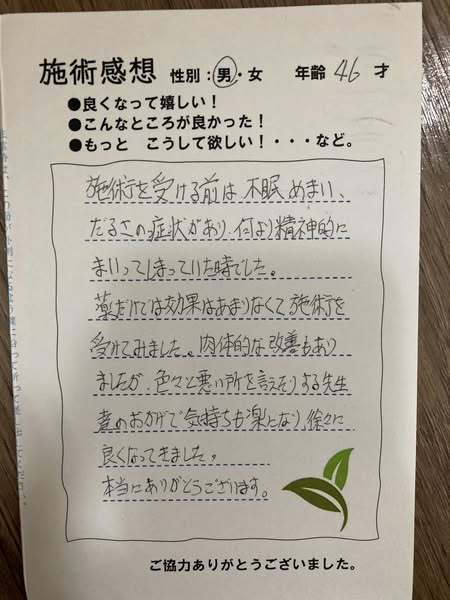 施術感想 性別：男・女 年齢 46 才
●良くなって嬉しい！
●こんなところが良かった！
●もっと こうして欲しい！・・・など。
施術を受ける前は、不眠、めまい、
だるさの症状があり、何より精神的に
まいってしまっていた時でした。
薬だけでは効果はあまりなくて施術を
受けてみました。肉体的な改善もあり
ましたが、色々と悪い所を言えたりする先生
達のおかげで気持ちも楽になり、徐々に
良くなってきました。
本当にありがとうございます。
ご協力ありがとうございました。